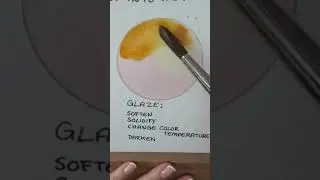 GLAZE:
SOFTEN
SOLIDIFY
CHANGE COLOR
TEMPERATURE
DARKEN